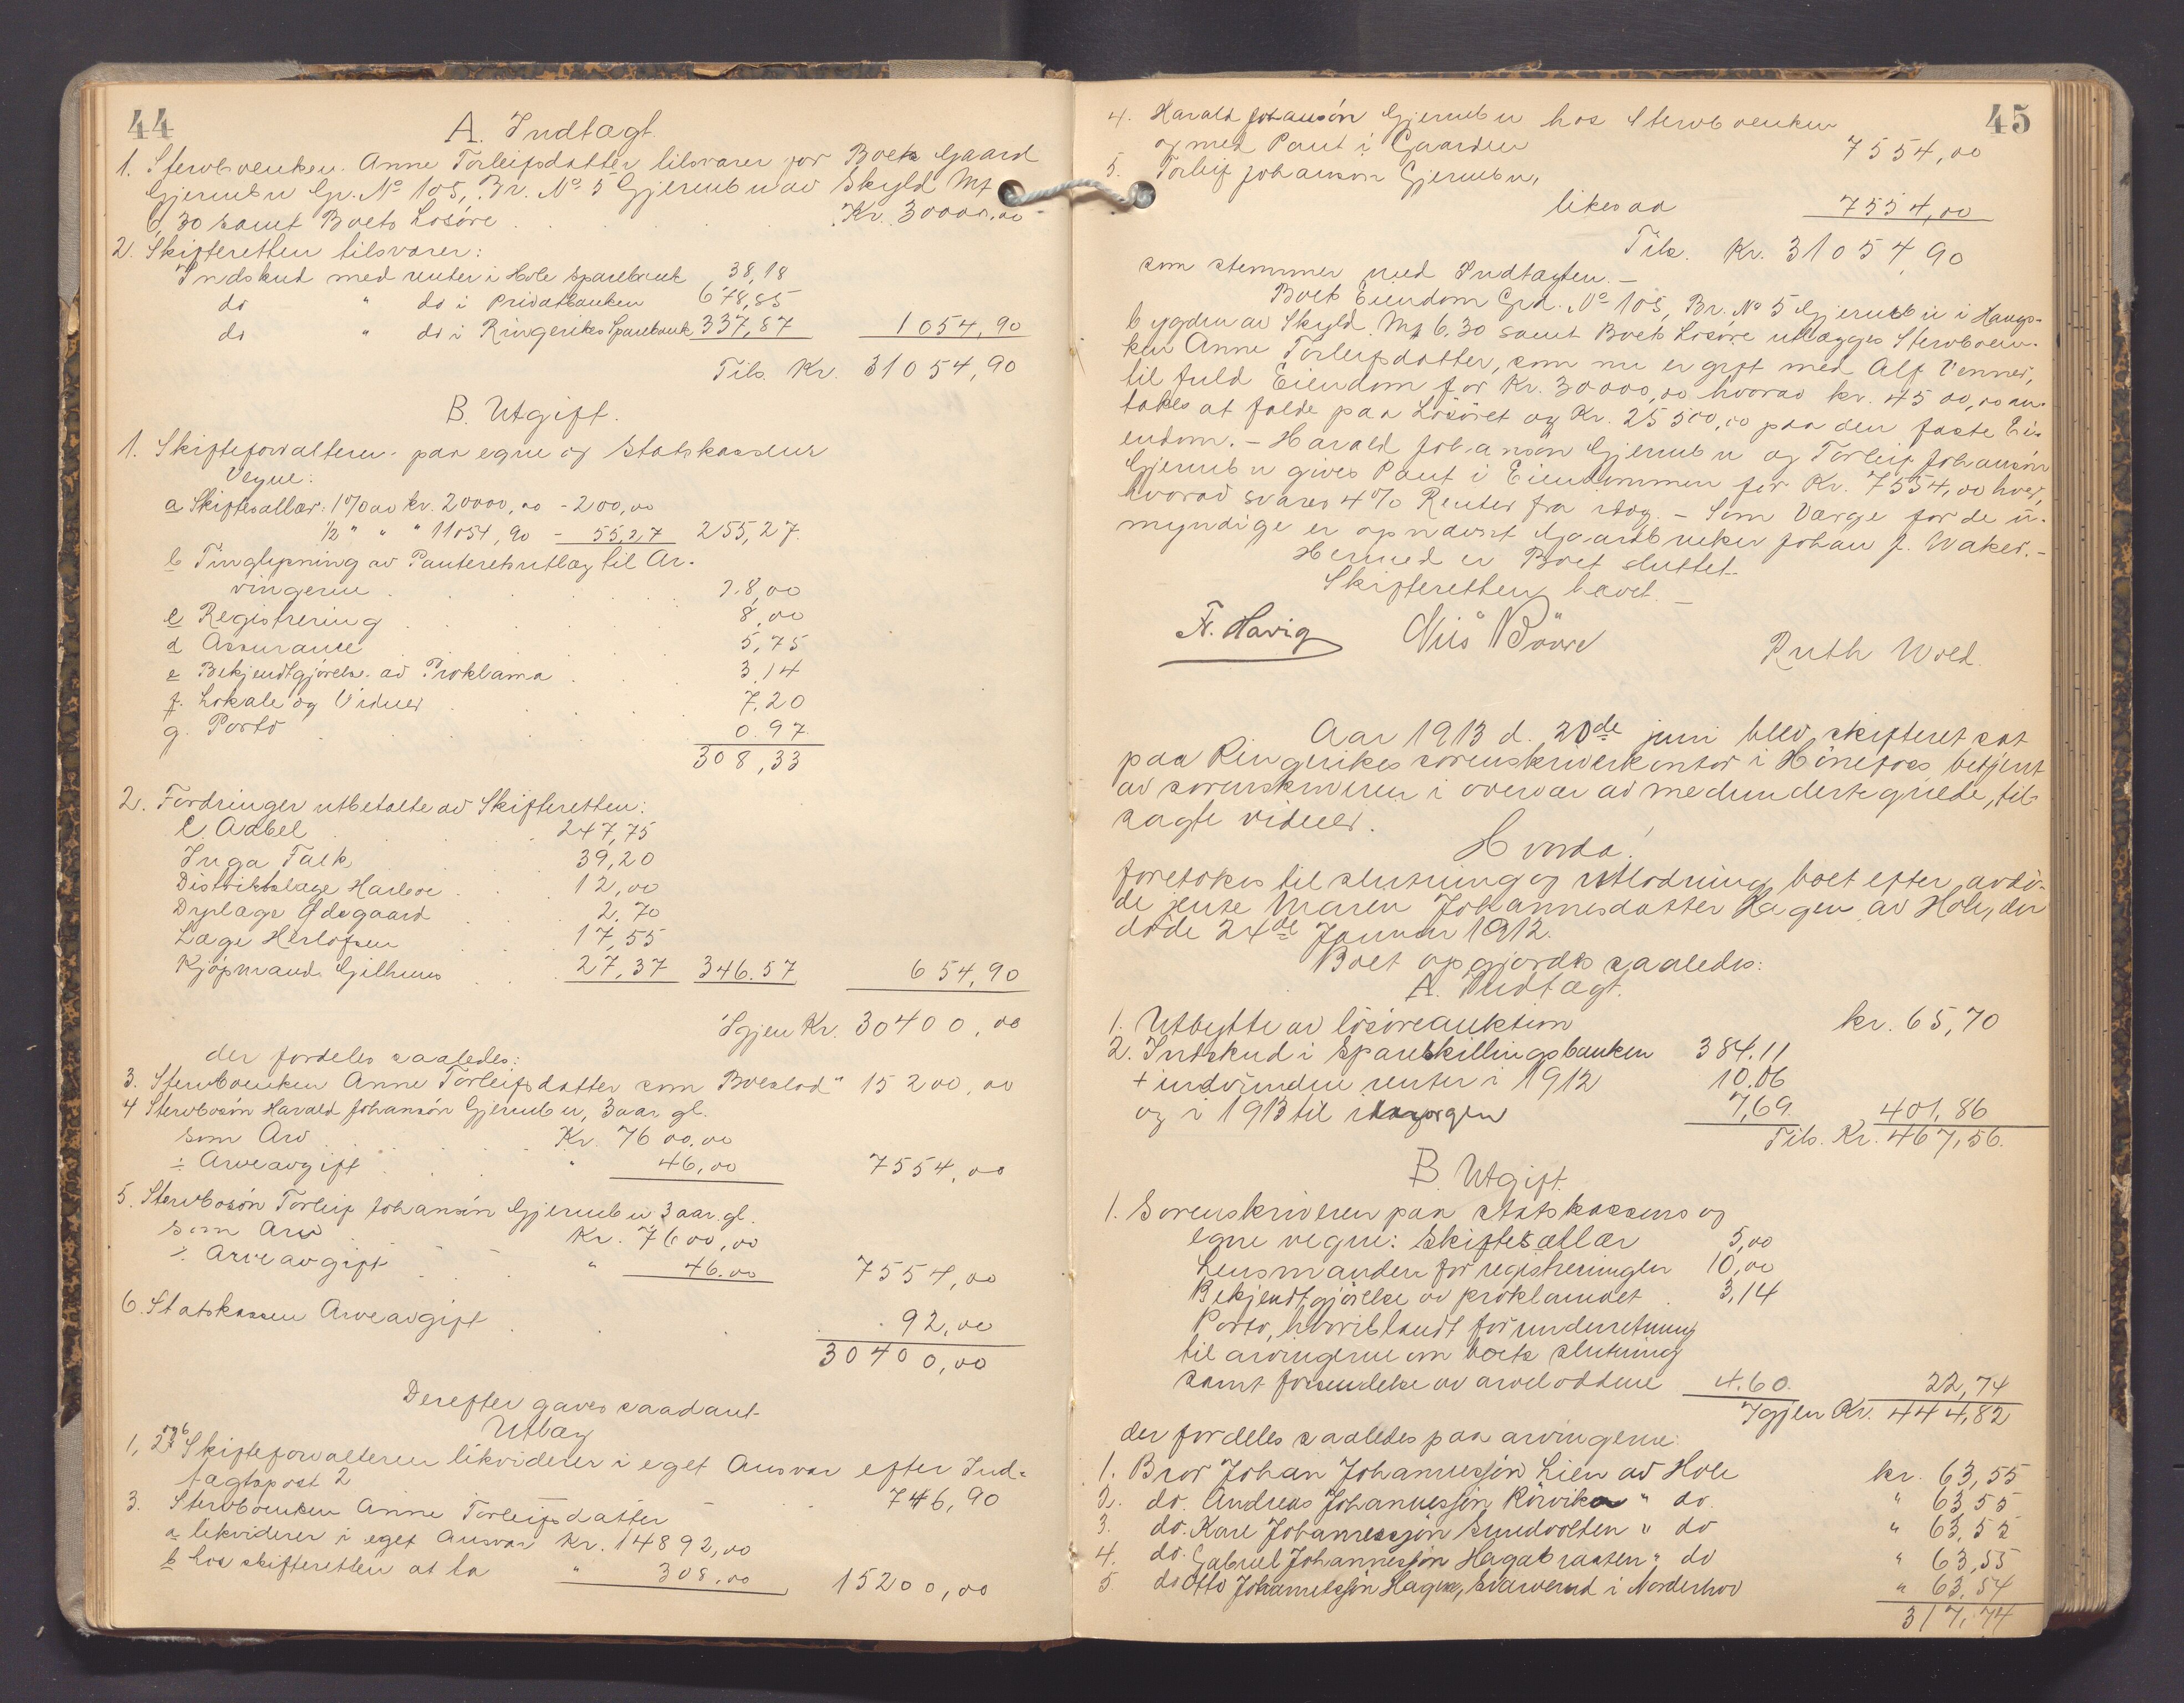 44
A. Indtægt.
1. Stervboenken Anne Torleifsdatter tilsvarer for Boets Gaard
Gjermbu Gr. No 105, Br. No 5 Gjermbu av Skyld Mf
6,30 samt Boets Løsøre . . . Kr. 30000,00
2. Skifteretten tilsvarer:
Indskud med renter i Hole Sparebank 38,18
do " do i Privatbanken 678,85
do " do i Ringerikes Sparebank 337,87 1054,90
Tils. Kr. 31054,90
B. Utgift.
1. Skifteforvalteren paa egne og Statskassens
Vegne:
a Skiftesallær: 1% av kr. 20000,00 - 200,00
1/2 " " " 11054,90 - 55,27 255,27
b Tinglysning av Panteretsutlæg til Ar-
vingerne . . . 28,00
c Registrering . . . 8,00
d Assurance 5,75
e Bekjendtgjørelse av Proklama . . 3,14
f. Lokale og Vidner . . . 7,20
g. Porto . . . 0.97
308,33
2. Fordringer utbetalte av Skifteretten:
C. Aabel 247,75
Inga Falk 39,20
Distriktslæge Harboe . . 12,00
Dyrlæge Ødegaard . . 2,70
Læge Herlofsen . . 17,55
Kjøpmand Gjilhuus . . 27,37 346.57 654,90
Igjen Kr. 30400,00
der fordeles saaledes:
3. Stervboenken Anne Torleifsdatter som Boeslod " 15200,00
4 Stervbosøn Harald Johansøn Gjermbu, 3 aar gl.
som Arv . . . Kr. 7600,00
÷ Arveavgift . . . " 46,00 7554,00
5. Stervbosøn Torleif Johansøn Gjermbu 3 aar. gl.
som Arv . . Kr. 7600,00
÷ Arveavgift . . . " 46.00 7554,00
6. Statskassen Arveavgift . . . 92,00
30400,00
Derefter gaves saadant
Utlæg
1, 2 og 6 Skifteforvalteren likviderer i eget Ansvar efter Ind-
tægtspost 2 746,90
3. Stervboenken Anne Torleifsdatter
a likviderer i eget Ansvar Kr. 14892,00
b hos skifteretten at ta " 308,00 15200,00
45
4. Harald Johansøn Gjermbu hos Stervboenken
og med Pant i Gaarden 7554,00
5. Torleif Johansøn Gjermbu,
likesaa 7554,00
Tils. Kr. 31054,90
som stemmer med Indtægten. —
Boets Eiendom Grd. No 105, Br. No 5 Gjermbu i Haugs-
bygden av Skyld Mf 6.30 samt Boets Løsøre utlægges Stervboen-
ken Anne Torleifsdatter, som nu er gift med Alf Venner,
til fuld Eiendom for Kr. 30000,00 hvorav kr. 4500,00 an-
takes at falde paa Løsøret og Kr. 25500,00 paa den faste Ei-
endom. — Harald Johansøn Gjermbu og Torleif Johansøn
Gjermbu gives Pant i Eiendommen for Kr. 7554,00 hver,
hvorav svares 4% Renter fra idag. — Som Værge for de u-
myndige er opnævnt Gaardbruker Johan J. Waker. —
Hermed er Boet sluttet.
Skifteretten hævet. —
Fr. Havig Nils Ruth Wold.
Aar 1913 d. 20de juni blev skifteret sat
paa Ringerikes sorenskriverkontor i Hønefoss, betjent
av sorenskriveren i overvær av medundertegnede, til-
sagte vidner.
Hvorda!
foretokes til slutning og utlodning boet efter avdø-
de jente Maren Johannesdatter Hagen av Hole, der
døde 24de Januar 1912.
Boet opgjordes saaledes:
A. Indtægt.
1. Utbytte av løsøreauktion kr. 65,70
2. Indskud i Spareskillingsbanken 384.11
+ indvundne renter i 1912 10.06
og i 1913 til idag 7,69 401,86
Tils. Kr. 467,56.
B. Utgift.
1. Sorenskriveren paa statskassens og
egne vegne: Skiftesallær 5,00
Lensmanden for registreringen 10,00
Bekjendtgjørelse av proklamaet . 3,14
Porto, hvoriblandt for underretning
til arvingerne om boets slutning
samt forsendelse av arveloddene 4.60. 22,74
Igjen Kr. 444,82
der fordeles saaledes paa arvingerne:
1. Bror Johan Johannessøn Lien av Hole kr. 63,55
2. do. Andreas Johannessøn Rørvika " do. " 63,55
3. do. Kare Johannessøn Sundvolten " do " 63,55
4. do. Gabriel Johannessøn Hagabraaten " do " 63,55
5. do Otto Johannessøn Hagen, Svarverud i Norderhov " 63,54
317,74